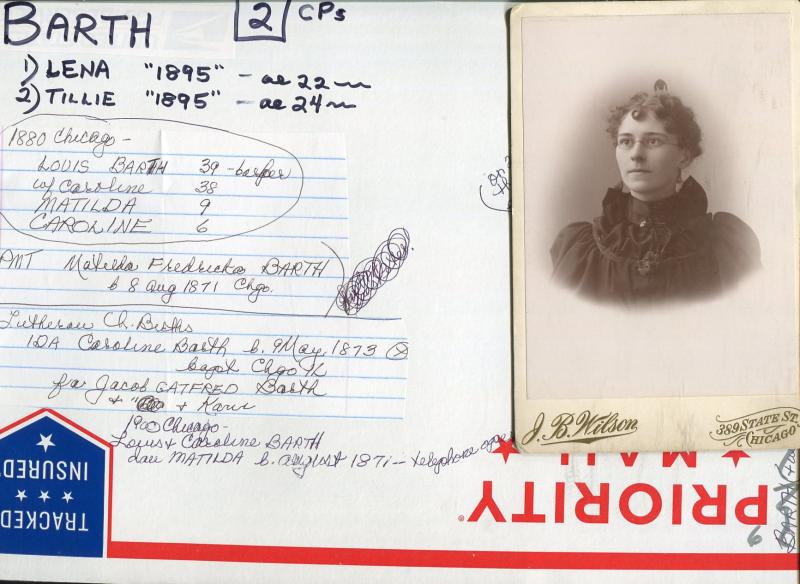 BARTH [2] CPs
1) LENA "1895" - ae 22
2) TILLIE "1895" - ae 24
1880 Chicago -
LOUIS BARTH 39 - barber
w/ Caroline 38
MATILDA 9
CAROLINE 6
PMT Matilda Fredricka BARTH
b 8 Aug 1871 Chgo.
Lutheran Ch. Births
IDA Caroline Barth b. 9 May 1873
bapt Chgo
fa Jacob GATFRED Barth
1900 Chicago -
Louis & Caroline BARTH
dau MATILDA b. august 1871 - telephone
J. B. Wilson
389 STATE ST.
CHICAGO
TRACKED
INSURED
PRIORITY
MAIL
6
BARTH